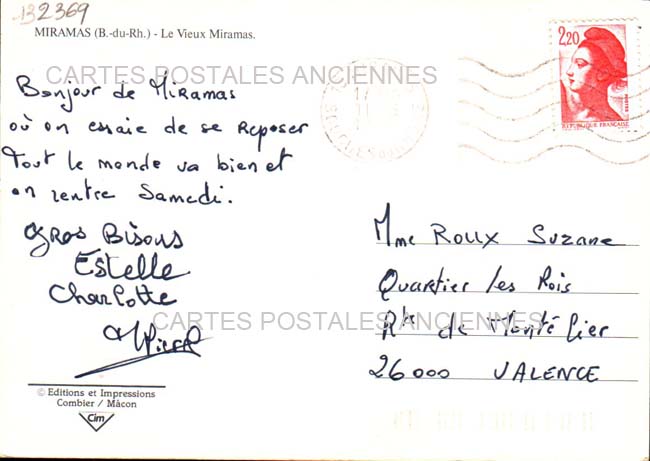 132369
MIRAMAS (B.-du-Rh.) - Le Vieux Miramas.
2,20
POSTES
REPUBLIQUE FRANÇAISE
CARTES POSTALES ANCIENNES
Bonjour de Miramas
où on essaie de se reposer
Tout le monde va bien et
on rentre Samedi.
Gros Bisous
Estelle
Charlotte
Mme ROUX Suzane
Quartier les Rois
Rte de Montélier
26000 VALENCE
CARTES POSTALES ANCIENNES
© Editions et Impressions
Combier / Mâcon
Cim